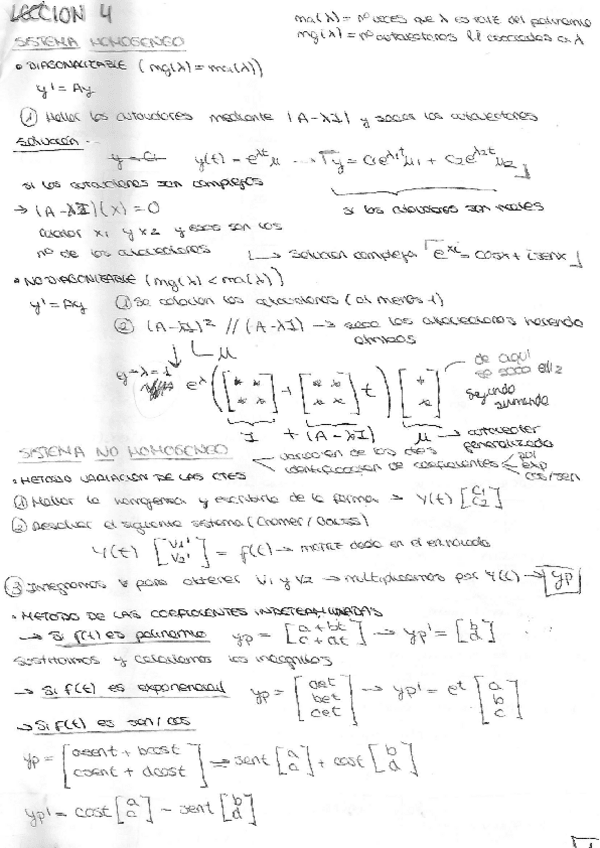 LECCION 4
ma(λ) = nº veces que λ es raíz del polinomio
mg(λ) = nº autovectores l.i asociados a λ
SISTEMA HOMOGENEO
• DIAGONALIZABLE (mg(λ) = ma(λ))
y' = Ay
① Hallar los autovalores mediante |A-λI| y sacar los autovectores
solución
y = C1 y(t) = e^λt μ ... y = C1e^λ1t μ1 + C2e^λ2t μ2
si los autovalores son complejos
si los autovalores son reales
→ (A-λI)(x) = 0
calcular x1 y x2 y esos son los
nº de los autovectores
→ solución compleja e^xi = cosx + i senx
• NO DIAGONIZABLE (mg(λ) < ma(λ))
y' = Ay ① Se calculan los autovalores (al menos 1)
② (A-λI)² // (A-λI) → saca los autovectores haciendo
ambos
μ
e^λ ([ ] + [ ] t) [ ]
de aquí
se saca el 2
segundo
sumando
I + (A-λI) μ → autovector
generalizado
SISTEMA NO HOMOGENEO
variación de las ctes
identificación de coeficientes
pol
exp
cos/sen
• METODO VARIACION DE LAS CTES
① Hallar la homogenea y escribirla de la forma → Y(t) [C1 C2]
② Resolver el siguiente sistema (Cramer/Gauss)
Y(t) [V1' V2'] = f(t) → matriz dada en el enunciado
③ Integramos para obtener V1 y V2 → multiplicamos por Y(t) → yp
• METODO DE LAS COEFICIENTES INDETERMINADAS
→ Si f(t) es polinomio yp = [a + bt c + dt] → yp' = [b d]
sustituimos y calculamos las incógnitas
→ Si f(t) es exponencial yp = [ae^t be^t ce^t] → yp' = e^t [a b c]
→ Si f(t) es sen/cos
yp = [asent + bcost csent + dcost] = sent [a c] + cost [b d]
yp' = cost [a c] - sent [b d]
1